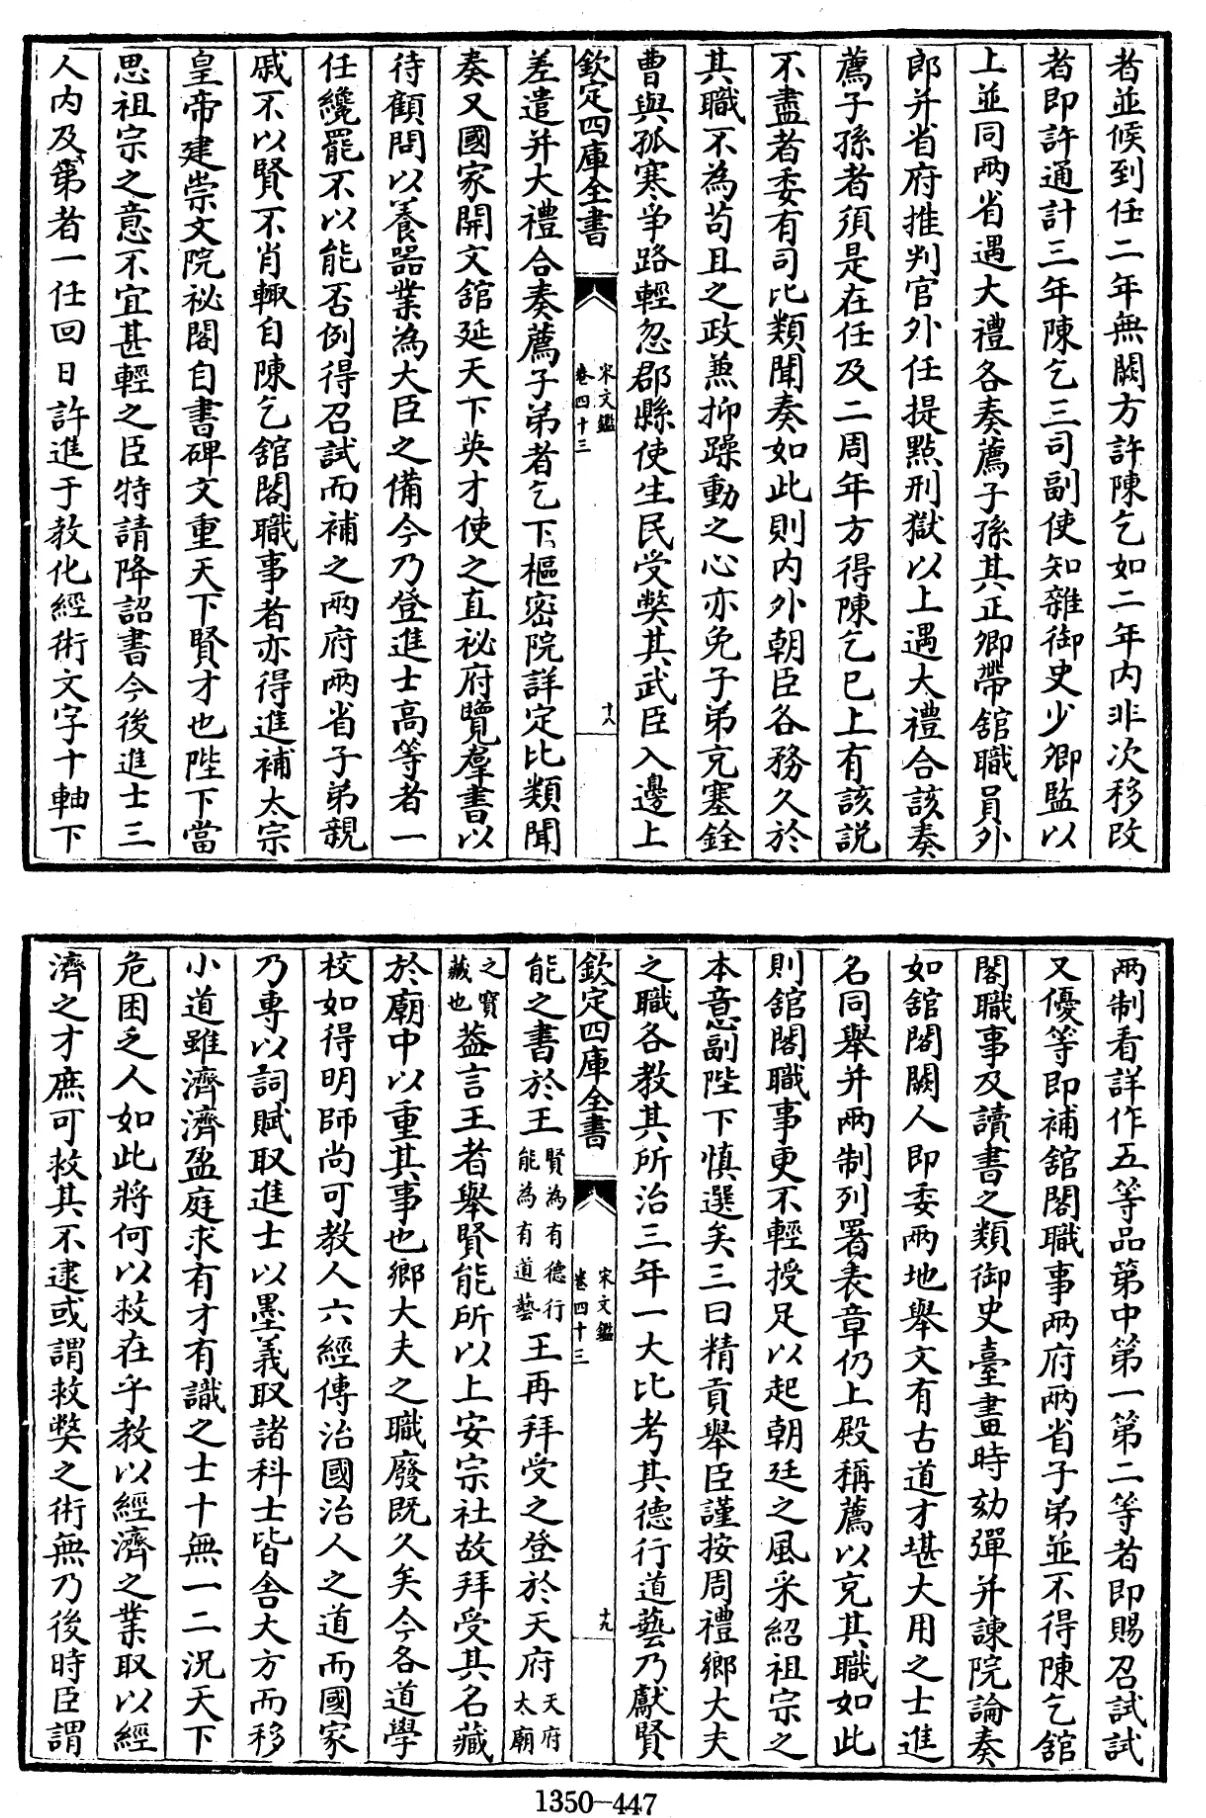 者並候到任二年無闕方許陳乞如二年內非次移改
者即許通計三年陳乞三司副使知雜御史少卿監以
上並同兩省遇大禮各奏薦子孫其正卿帶舘職員外
郎并省府推判官外任提點刑獄以上遇大禮合該奏
薦子孫者須是在任及二周年方得陳乞已上有該説
不盡者委有司比類聞奏如此則內外朝臣各務久於
其職不為苟且之政兼抑躁動之心亦免子弟充塞銓
曹與孤寒争路輕忽郡縣使生民受弊其武臣入邊上
欽定四庫全書
宋文鑑
卷四十三
十八
差遣并大禮合奏薦子弟者乞下樞密院詳定比類聞
奏又國家開文舘延天下英才使之直祕府覽羣書以
待顧問以養器業為大臣之備今乃登進士高等者一
任纔罷不以能否例得召試而補之兩府兩省子弟親
戚不以賢不肖輙自陳乞舘閣職事者亦得進補太宗
皇帝建崇文院祕閣自書碑文重天下賢才也陛下當
思祖宗之意不宜甚輕之臣特請降詔書今後進士三
人內及第者一任回日許進于教化經術文字十軸下
兩制看詳作五等品第中第一第二等者即賜召試試
又優等即補舘閣職事兩府兩省子弟並不得陳乞舘
閣職事及讀書之類御史臺畫時劾彈并諫院論奏
如舘閣闕人即委兩地舉文有古道才堪大用之士進
名同舉并兩制列署表章仍上殿稱薦以充其職如此
則舘閣職事更不輕授足以起朝廷之風采紹祖宗之
本意副陛下慎選矣三曰精貢舉臣謹按周禮鄉大夫
之職各教其所治三年一大比考其德行道藝乃獻賢
欽定四庫全書
宋文鑑
卷四十三
十九
能之書於王賢為有德行能為有道藝王再拜受之登於天府天府太廟
之寳藏也葢言王者舉賢能所以上安宗社故拜受其名藏
於廟中以重其事也鄉大夫之職廢既久矣今各道學
校如得明師尚可教人六經傳治國治人之道而國家
乃專以詞賦取進士以墨義取諸科士皆舍大方而移
小道雖濟濟盈庭求有才有識之士十無一二況天下
危困乏人如此將何以救在乎教以經濟之業取以經
濟之才庶可救其不逮或謂救弊之術無乃後時臣謂
1350-447